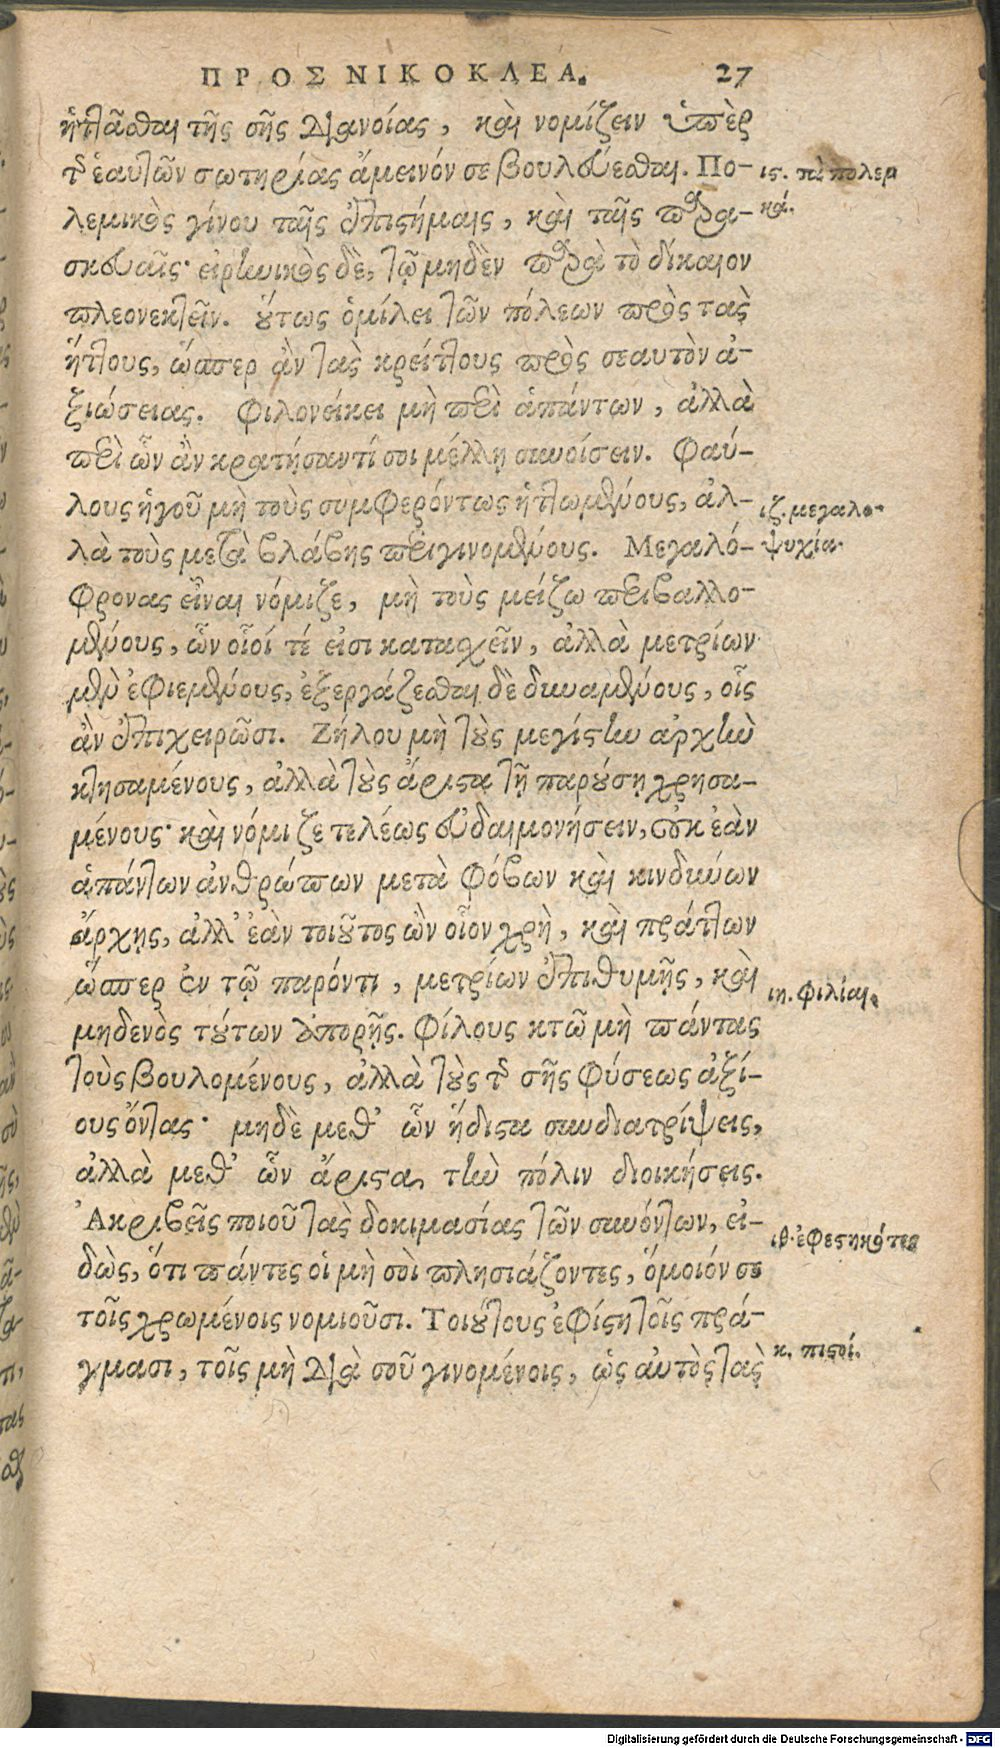 ΠΡΟΣ ΝΙΚΟΚΛΕΑ. 27
ἡττᾶσθαι τῆς σῆς διανοίας, καὶ νομίζειν ὑπὲρ
τῆς ἑαυτῶν σωτηρίας ἄμεινόν σε βουλεύεσθαι. Πο-
λεμικὸς γίνου ταῖς ἐπιστήμαις, καὶ ταῖς παρα-
σκευαῖς· εἰρηνικὸς δὲ, τῷ μηδὲν παρὰ τὸ δίκαιον
πλεονεκτεῖν. οὕτως ὁμίλει τῶν πόλεων πρὸς τὰς
ἥττους, ὥσπερ ἂν τὰς κρείττους πρὸς σεαυτὸν ἀ-
ξιώσειας. Φιλονείκει μὴ περὶ ἁπάντων, ἀλλὰ
περὶ ὧν ἂν κρατήσαντί σοι μέλλῃ συνοίσειν. Φαύ-
λους ἡγοῦ μὴ τοὺς συμφερόντως ἡττωμένους, ἀλ-
λὰ τοὺς μετὰ βλάβης περιγινομένους. Μεγαλό-
φρονας εἶναι νόμιζε, μὴ τοὺς μείζω περιβαλλο-
μένους, ὧν οἷοί τέ εἰσι κατασχεῖν, ἀλλὰ μετρίων
μὲν ἐφιεμένους, ἐξεργάζεσθαι δὲ δυναμένους, οἷς
ἂν ἐπιχειρῶσι. Ζήλου μὴ τοὺς μεγίστην ἀρχὴν
κτησαμένους, ἀλλὰ τοὺς ἄριστα τῇ παρούσῃ χρησα-
μένους· καὶ νόμιζε τελέως εὐδαιμονήσειν, οὐκ ἐὰν
ἁπάντων ἀνθρώπων μετὰ φόβων καὶ κινδύνων
ἄρχῃς, ἀλλ' ἐὰν τοιοῦτος ὢν οἷον χρὴ, καὶ πράττων
ὥσπερ ἐν τῷ παρόντι, μετρίων ἐπιθυμῇς, καὶ
μηδενὸς τούτων ἀπορῇς. Φίλους κτῶ μὴ πάντας
τοὺς βουλομένους, ἀλλὰ τοὺς τῆς σῆς φύσεως ἀξί-
ους ὄντας· μηδὲ μεθ' ὧν ἥδιστα συνδιατρίψεις,
ἀλλὰ μεθ' ὧν ἄριστα τὴν πόλιν διοικήσεις.
Ἀκριβεῖς ποιοῦ τὰς δοκιμασίας τῶν συνόντων, εἰ-
δὼς, ὅτι πάντες οἱ μὴ σοὶ πλησιάζοντες, ὅμοιόν σε
τοῖς χρωμένοις νομιοῦσι. Τοιούτους ἐφίστη τοῖς πρά-
γμασι, τοῖς μὴ διὰ σοῦ γινομένοις, ὡς αὐτὸς τὰς
ιϛ. τὰ πολεμι
κά.
ιζ. μεγαλο-
ψυχία.
ιη. φιλίαι.
ιθ. ἐφεστηκότες
κ. πιστοί.
Digitalisierung gefördert durch die Deutsche Forschungsgemeinschaft - DFG